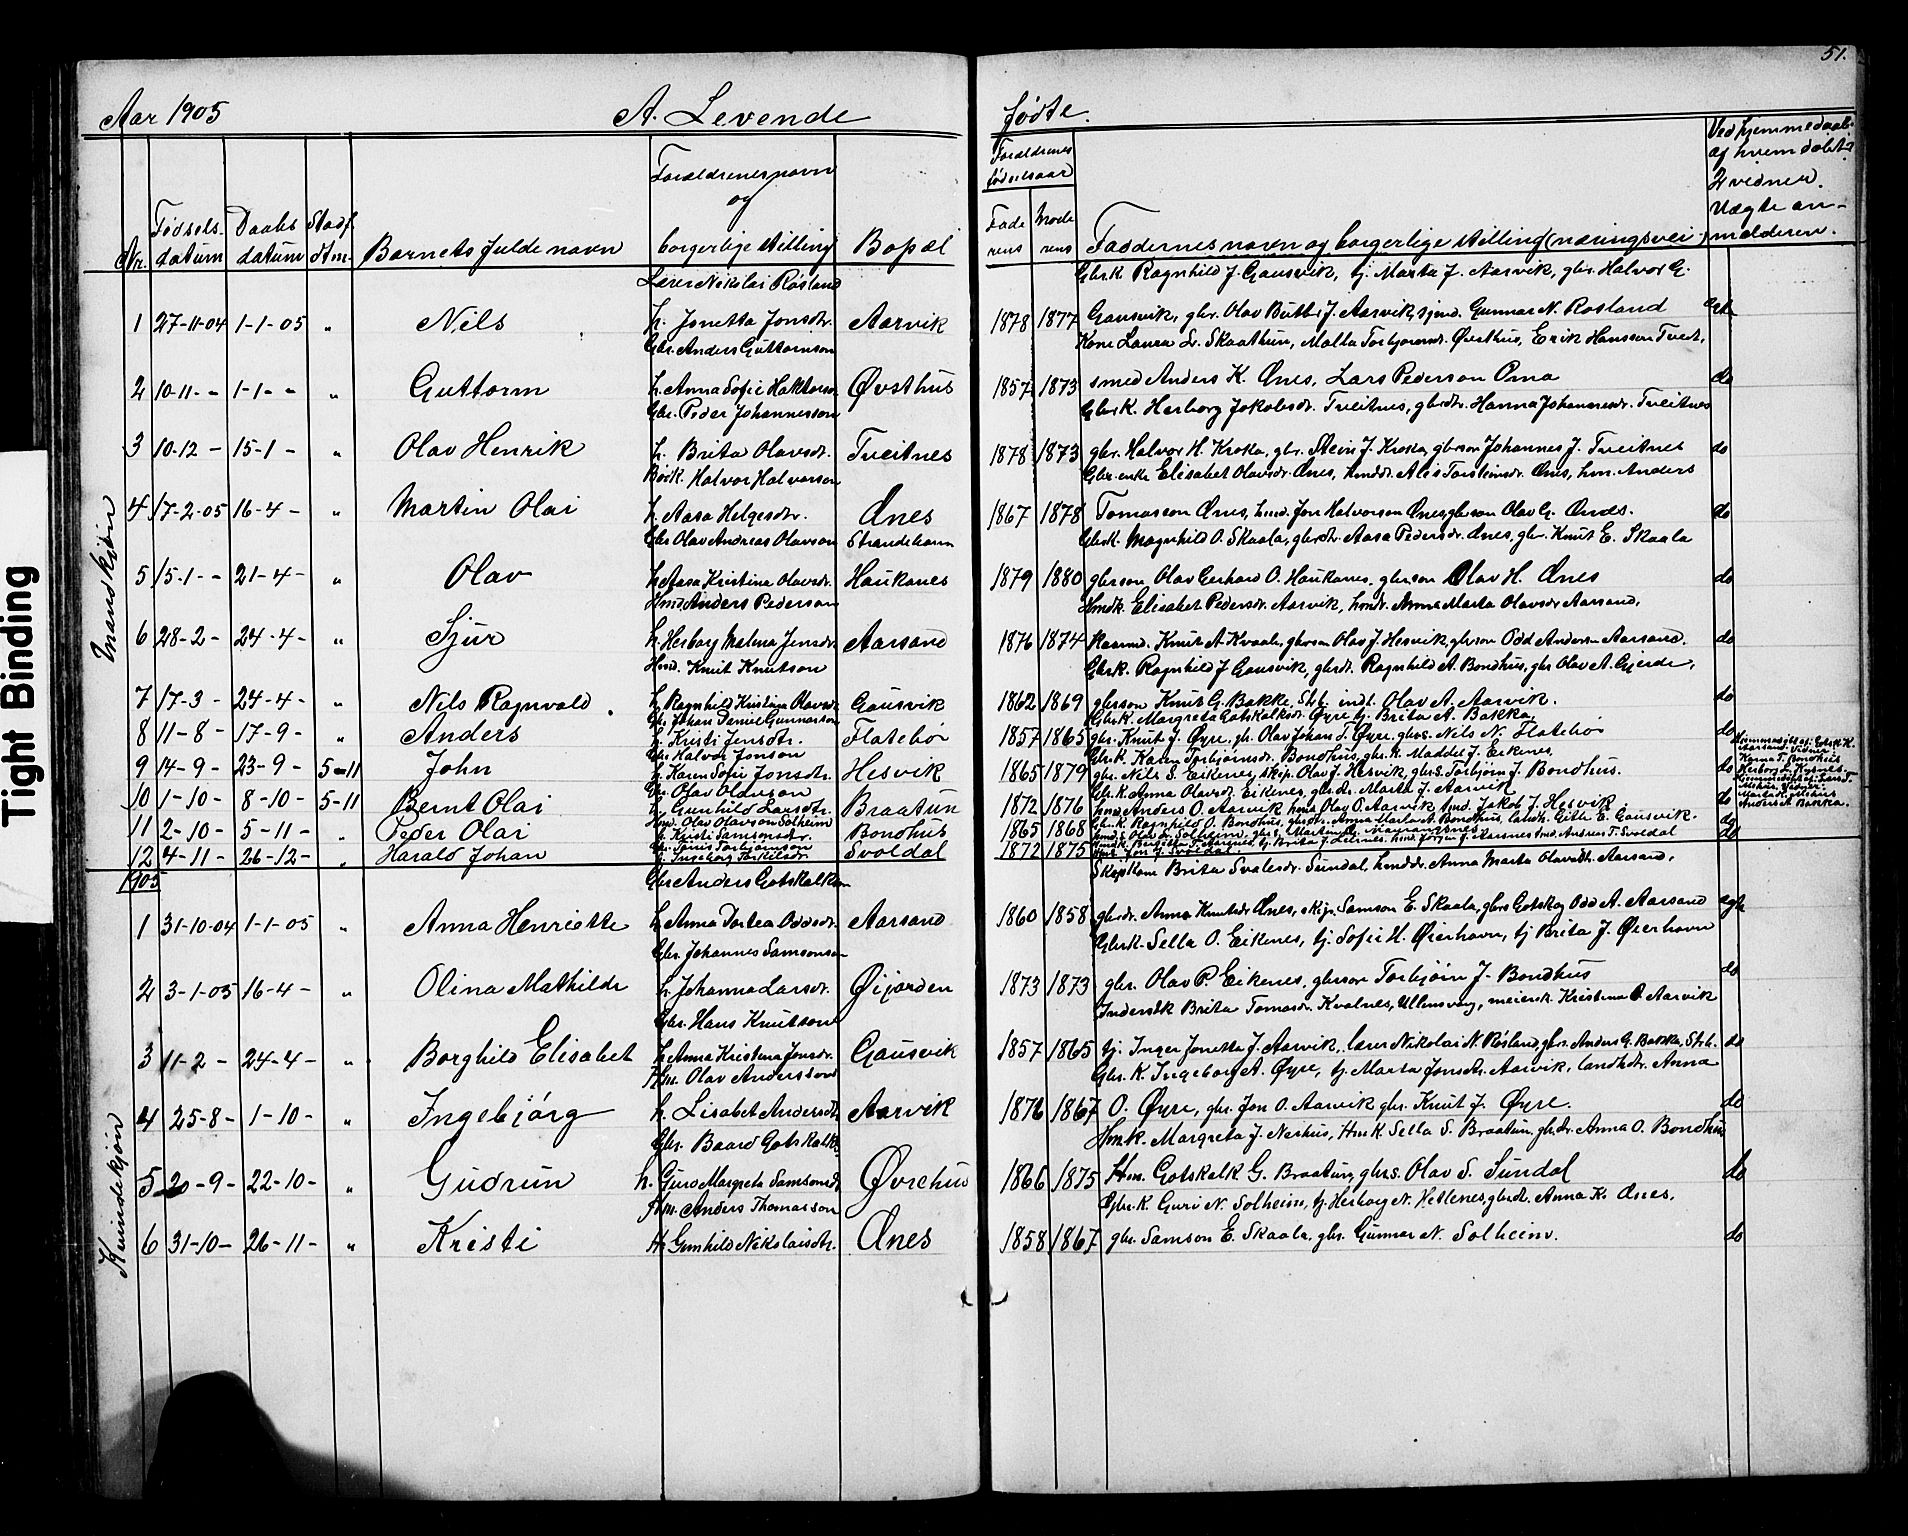 51.
Aar 1905 A. Levende fødte.
Nr. Fødsels-datum Daabs datum Stadf. dtm. Barnets fulde navn Forældrenes navn og borgerlige stilling Bopæl Forældrenes fødselsaar Faderens Moderens Faddernes navn og borgerlige stilling (næringsvei) Ved hjemmedaab: af hvem døbt? 2 vidner. Uægte anmelderen.
Mandkjøn
Lærer Nikolai Røsland Gbr.k. Ragnhild J. Gausvik, tj. Marta J. Aarvik, gbr. Halvor G.
1 27-11-04 1-1-05 " Nils h. Jonetta Jonsdtr. Aarvik 1878 1877 Gausvik, gbr. Olav J. Aarvik, Gunnar N. Røsland
Gbr. Anders Guttormson Kone Laura L. Skaathun, Malla Torbjørnsdtr. Øvsthus, Erik Hansson Tveit,
2 10-11- " 1-1- " " Guttorm h. Anna Sofie Øvsthus 1857 1873 smed Anders K. Ænes, Lars Pederson Oma do
Gbr. Peder Johannesson Gbr.k. Herborg Jakobsdr. Tveitnes, gbrdtr. Hanna Johannesdr. Tveitnes
3 10-12 - 15-1 - " Olav Henrik h. Brita Olavsdr. Tveitnes 1878 1873 gbr. Halvor H. Kroka, gbr. Stein J. Kroka, gbrson Johannes J. Tveitnes do
Halvor Halvorson Gbr. enke Elisabet Olavsdr. Ænes, Ænes, hm. Anders
4 17-2-05 16-4 - " Martin Olai h. Aasa Helgesdtr. Ænes 1867 1878 Tomasson Ænes, hmd. Jon Halvorson Ænes, gbrson Olav G. Ænes. do
Gbr. Olav Andreas Olavson Strandebarm Gbr.k. Magnhild O. Skaala, gbrdtr. Aasa Pedersdr. Ænes, gbr. Knut E. Skaala
5 15-1- - 21-4 - " Olav h. Aasa Kristina Olavsdr. Haukanes 1879 1880 gbrson Olav Gerhard O. Haukanes, gbrson Olav H. Ænes do
Hmd. Anders Pederson Hmdk. Elisabet Pedersdr. Aarvik, hmdr. Anna Marta Olavsdr Aarsand,
6 28-2- 24-4- " Sjur h. Herborg Malena Jensdr. Aarsand 1876 1874 Knut A. Kvaale, gbrson Olav J. Hesvik, gbrson Odd Anderson Aarsand. do
Hmd. Knut Knutson Gbr.k. Ragnhild J Gausvik, gbrdt. Ragnhild A. Bondhus, gbr. Olav A. Gjerde,
7 17-3- 24-4- " Nils Ragnvald h. Ragnhild Kristina Olavsdr Gausvik 1862 1869 gbrson Knut G. Bakke, Stb. indt. Olav A. Aarvik. do
Gbr. Johan Daniel Gunnarson Gbr.k. Margreta Gotskalksdr. Øyre tj. Brita A. Bakka,
8 11-8- 17-9- " Anders h. Kristi Jensdtr. Flatebø 1857 1865 gbr. Knut J. Øyre, gbr. Olav Johan T. Øyre, gbrs. Nils N. Flatebø do
Gbr. Halvor Jonson Gbr.k. Karen Torbjørnsdr. Bondhus, gbr.k. Maddel J. Eikenes,
9 14-9- 23-9- 5-11 John h. Karen Sofie Jonsdtr. Hesvik 1865 1879 gbr. Nils S. Eikenes, skip. Olav J. Hesvik, gbrs. Torbjørn J. Bondhus. do
Gbr. Olav Olavson Gbr.k. Anna Olavsdr. Eikenes, gbr.dr. Marta J. Aarvik
10 1-10- 8-10- 5-11 Bernt Olai h. Gunhild Larsdtr. Braatun 1872 1876 hmd Anders O. Aarvik, hmd Olav O. Aarvik, hmd. Jakob J. Hesvik. do Anders A. Bakka.
Hmd. Olav Olavson Solheim Gbr.k. Ragnhild O. Bondhus, gbrdtr. Anna Marta A. Bondhus, E. Gausvik.
11 2-10- 5-11- " Peder Olai h. Kristi Samsonsdtr. Bondhus 1865 1868 do
12 4-11- 26-12- " Harald Johan h. Ingeborg Torkilsdr. Svoldal 1872 1875 Svoldal do
1905
Kvindekjøn
Gbr. Anders Gotskalkson Brita Svalesdr. Sundal, hmddr. Anna Marta Olavsdtr. Aarsand,
1 31-10-04 1-1-05 " Anna Henriette h. Anna Dortea Oddsdr. Aarsand 1860 1858 gbrdr. Anna Knutsdr Ænes, skip. Samson E. Skaala, gbrs Gotskalk Odd A. Aarsand
Gbr. Johannes Samsonson Gbr.k. Sella O. Eikenes, tj. Sofie H. Øierhavn, tj. Brita J. Øierhavn
2 3-1-05 16-4- " Olina Mathilde h. Johanna Larsdr. Øijorden 1873 1873 gbr. Olav P. Eikenes, gbrson Torbjørn J. Bondhus do
Gbr. Hans Knutson Brita Tomasdr. Kvalnes, Ullensvang, meiersk. Kristina O. Aarvik
3 11-2- 24-4- " Borghild Elisabet h. Anna Kristina Jonsdr. Gausvik 1857 1865 tj. Inger Jonetta J. Aarvik, lærer Nikolai N. Røsland, gbrs. Anders G. Bakka, Stb. do
Hm. Olav Andersson Gbr. K. Ingeborg A. Øyre, tj. Marta Jonsdtr. Aarvik, Anna
4 25-8- 1-10- " Ingebjørg h. Lisabet Andersdt. Aarvik 1876 1867 O. Øyre, gbr. Jon O. Aarvik gbr. Knut J. Øyre. do
Gbr. Baard Gotskalks. Hmk. Margreta J. Nerhus, Hmk. Sella S. Braatun, gbr.dr. Anna O. Bondhus
5 20-9- 22-10- " Gudrun h. Guro Margreta Samsonsdt. Øvrehus 1866 1875 Hm. Gotskalk G. Braatun, gbrs. Olav S. Sundal do
Hm. Anders Thomasson Gbr.k. Guri N. Solheim, tj. Herborg N. Hetlenes, gbrdt. Anna K. Ænes,
6 31-10- 26-11- " Kristi h. Gunhild Nikolaisdtr. Ænes 1858 1867 gbr. Samson E. Skaala, gbr. Gunnar N. Solheim. do
Tight Binding